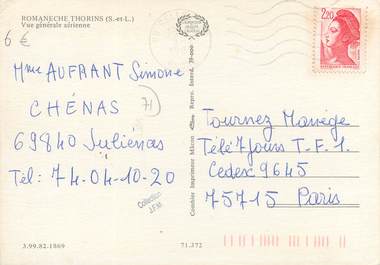 ROMANECHE THORINS (S.-et-L.)
Vue générale aérienne
6 €
Mme AUFRANT Simone
CHÉNAS
71
69840 Juliénas
Tél: 74-04-10-20
Collection
3.99.82.1869
Combier Imprimeur Mâcon
Repro. Interd. 39-000
71.372
2,20
Tournez Manège
Télé 7 Jours T-F.1.
Cedex 9645
75715 Paris